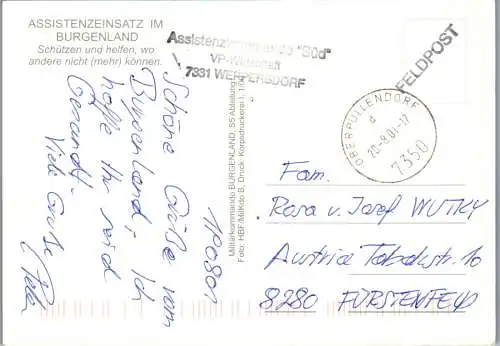 ASSISTENZEINSATZ IM
BURGENLAND
Schützen und helfen, wo
andere nicht (mehr) können.
Assistenzkommando "Süd"
VP-Wirtschaft
7331 WEPPERSDORF
FELDPOST
OBERPULLENDORF
d
20-8.01-17
7350
Militärkommando BURGENLAND, S5 Abteilung
Foto: HBF/MilKdo B, Druck: Korpsdruckerei I, 1/04
190801
Schöne Grüße vom
Burgenland, ich
hoffe Ihr seid
Gesund!
Viele Grüße
Peter
Fam.
Rosa u. Josef WUTKY
Austria Tabakstr. 10
8280 FÜRSTENFELD